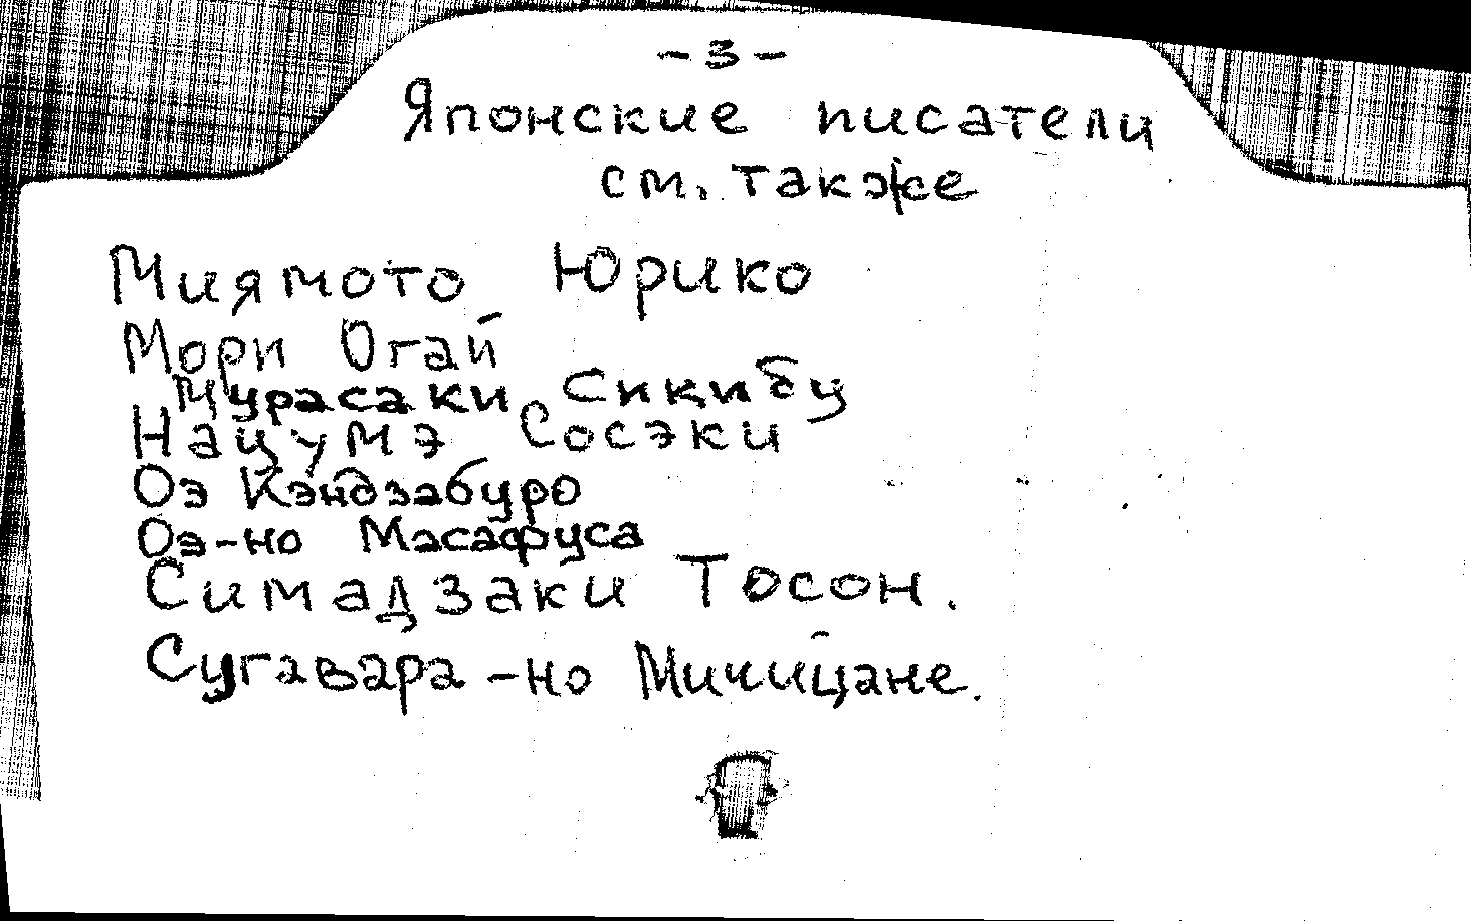 -3-
Японские писатели
см. также
Миямото Юрико
Мори Огай
Мурасаки Сикибу
Нацумэ Сосэки
Оэ Кэндзабуро
Оэ-но Масафуса
Симадзаки Тосон.
Сугавара-но Мичицане.